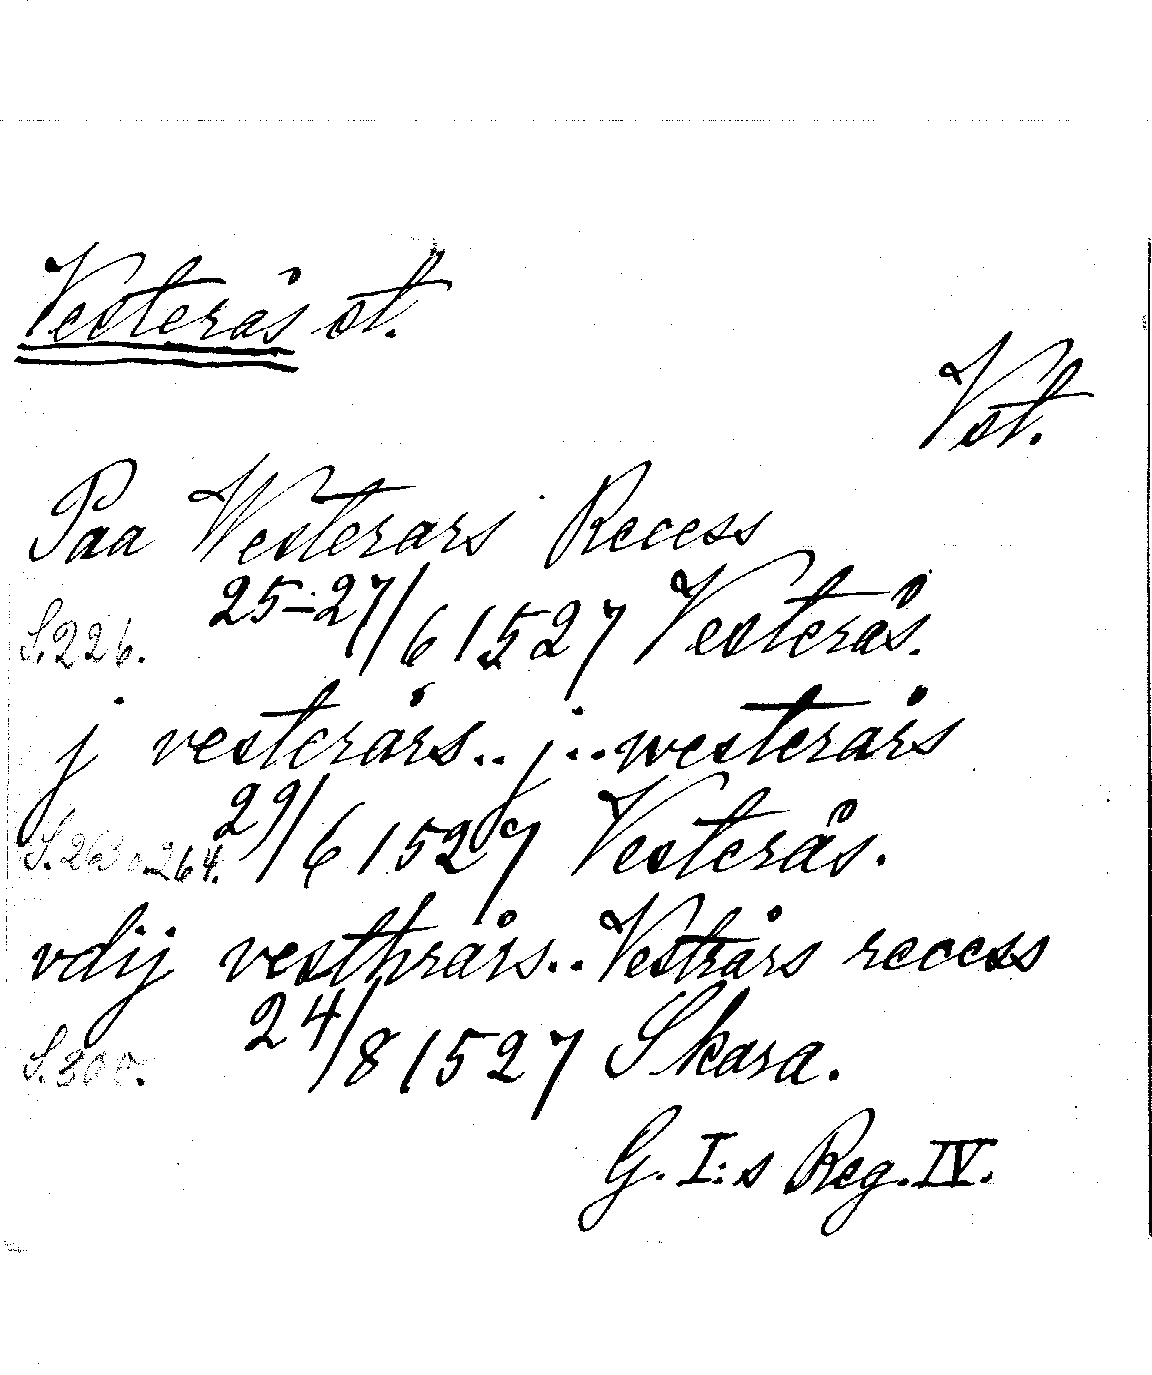 Vesterås st.
Vst.
Paa Westerars Recess
S.226. 25-27/6 1527 Vesterås.
j vesterårs.. j... westerårs
S.263 o. 264. 29/6 1527 Vesterås.
vdij vesthrårs.. Vestrårs recess
S.300. 24/8 1527 Skara.
G. I:s Reg. IV.